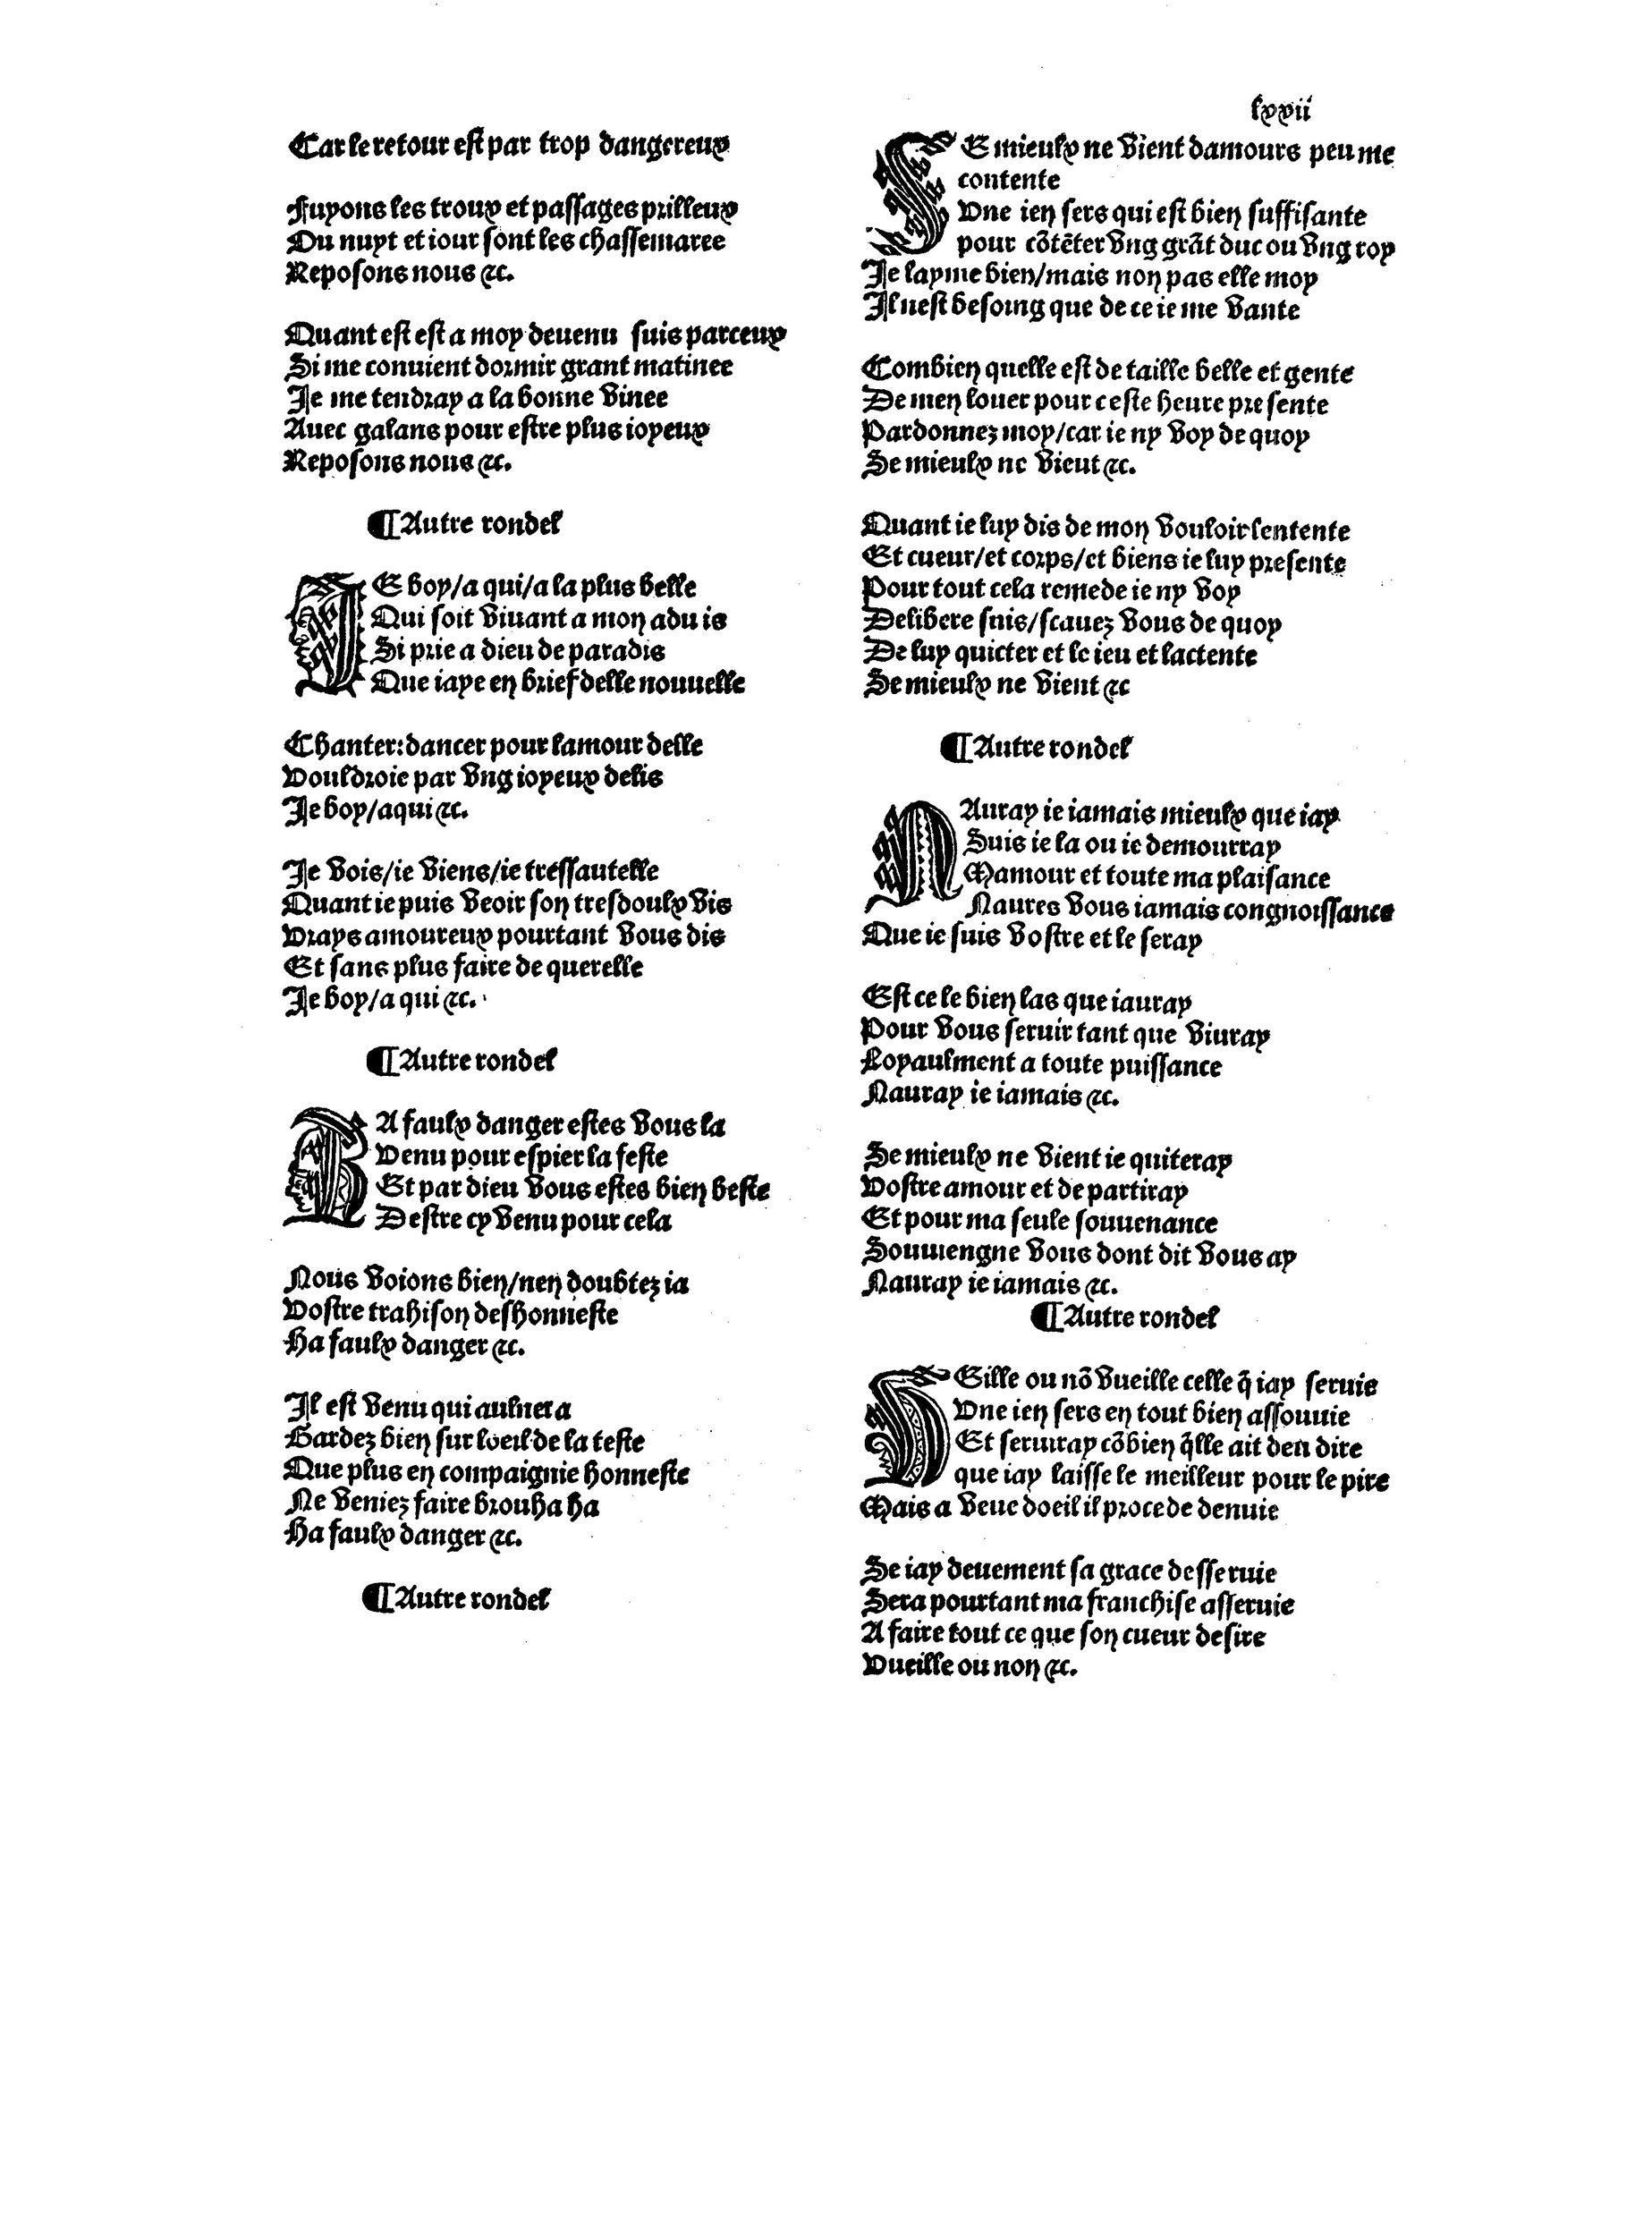 lxxii
Car le retour est par trop dangereux
Fuyons les troux et passages prilleux
Ou nuyt et iour sont les chassemaree
Reposons nous ⁊c.
Quant est est a moy deuenu suis parceux
Si me conuient dormir grant matinee
Je me tendray a la bonne vinee
Auec galans pour estre plus ioyeux
Reposons nous ⁊c.
¶Autre rondel
JE boy/a qui/a la plus belle
Qui soit viuant a mon adu is
Si prie a dieu de paradis
Que iaye en brief delle nouuelle
Chanter:dancer pour lamour delle
Vouldroie par vng ioyeux delis
Je boy/aqui ⁊c.
Je vois/ie viens/ie tressautelle
Quant ie puis veoir son tresdoulx vis
Vrays amoureux pourtant vous dis
Et sans plus faire de querelle
Je boy/a qui ⁊c.
¶Autre rondel
HA faulx danger estes vous la
Venu pour espier la feste
Et par dieu vous estes bien beste
Destre cy venu pour cela
Nous voions bien/nen doubtez ia
Vostre trahison deshonneste
Ha faulx danger ⁊c.
Il est venu qui aulnera
Gardez bien sur loeil de la teste
Que plus en compaignie honneste
Ne veniez faire brouha ha
Ha faulx danger ⁊c.
¶Autre rondel
SE mieulx ne vient damours peu me
contente
Vne ien sers qui est bien suffisante
pour cõtẽter vng grãt duc ou vng roy
Je layme bien/mais non pas elle moy
Il nest besoing que de ce ie me vante
Combien quelle est de taille belle et gente
De men louer pour ceste heure presente
Pardonnez moy/car ie ny voy de quoy
Se mieulx ne vient ⁊c.
Quant ie luy dis de mon vouloir lentente
Et cueur/et corps/et biens ie luy presente
Pour tout cela remede ie ny voy
Delibere suis/scauez vous de quoy
De luy quicter et le ieu et lactente
Se mieulx ne vient ⁊c
¶Autre rondel
NAuray ie iamais mieulx que iay
Suis ie la ou ie demourray
Mamour et toute ma plaisance
Naures vous iamais congnoissance
Que ie suis vostre et le seray
Est ce le bien las que iauray
Pour vous seruir tant que viuray
Loyaulment a toute puissance
Nauray ie iamais ⁊c.
Se mieulx ne vient ie quiteray
Vostre amour et de partiray
Et pour ma seule souuenance
Souuiengne vous dont dit vous ay
Nauray ie iamais ⁊c.
¶Autre rondel
VEille ou nõ vueille celle q̃ iay seruie
Vne ien sers en tout bien assouuie
Et seruiray cõbien q̃lle ait den dire
que iay laisse le meilleur pour le pire
Mais a veue doeil il procede denuie
Se iay deuement sa grace desseruie
Sera pourtant ma franchise asseruie
A faire tout ce que son cueur desire
Vueille ou non ⁊c.